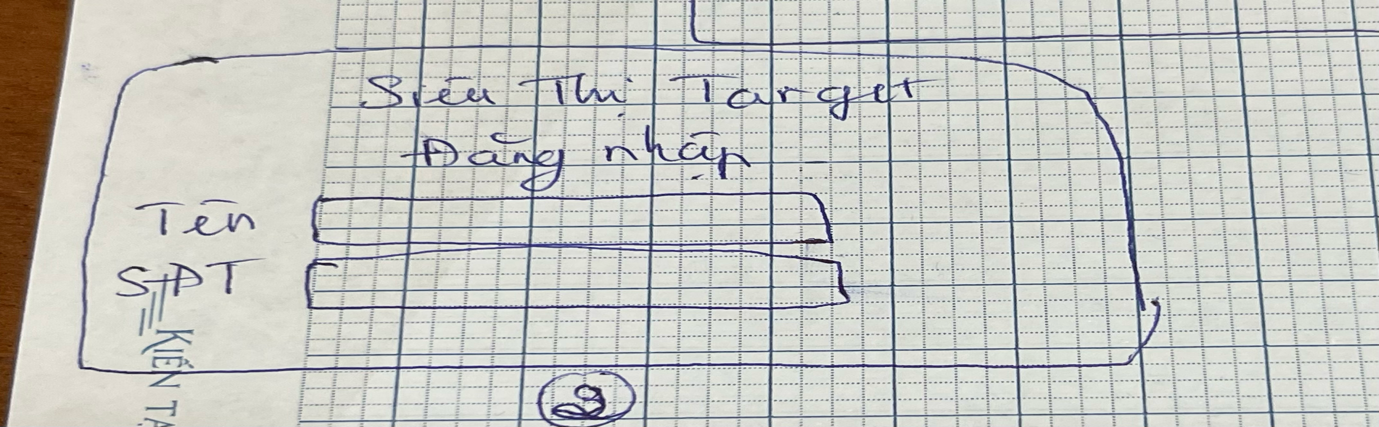 Siêu Thị Target
Đăng nhập
Tên
SĐT
KIẾN TẠ